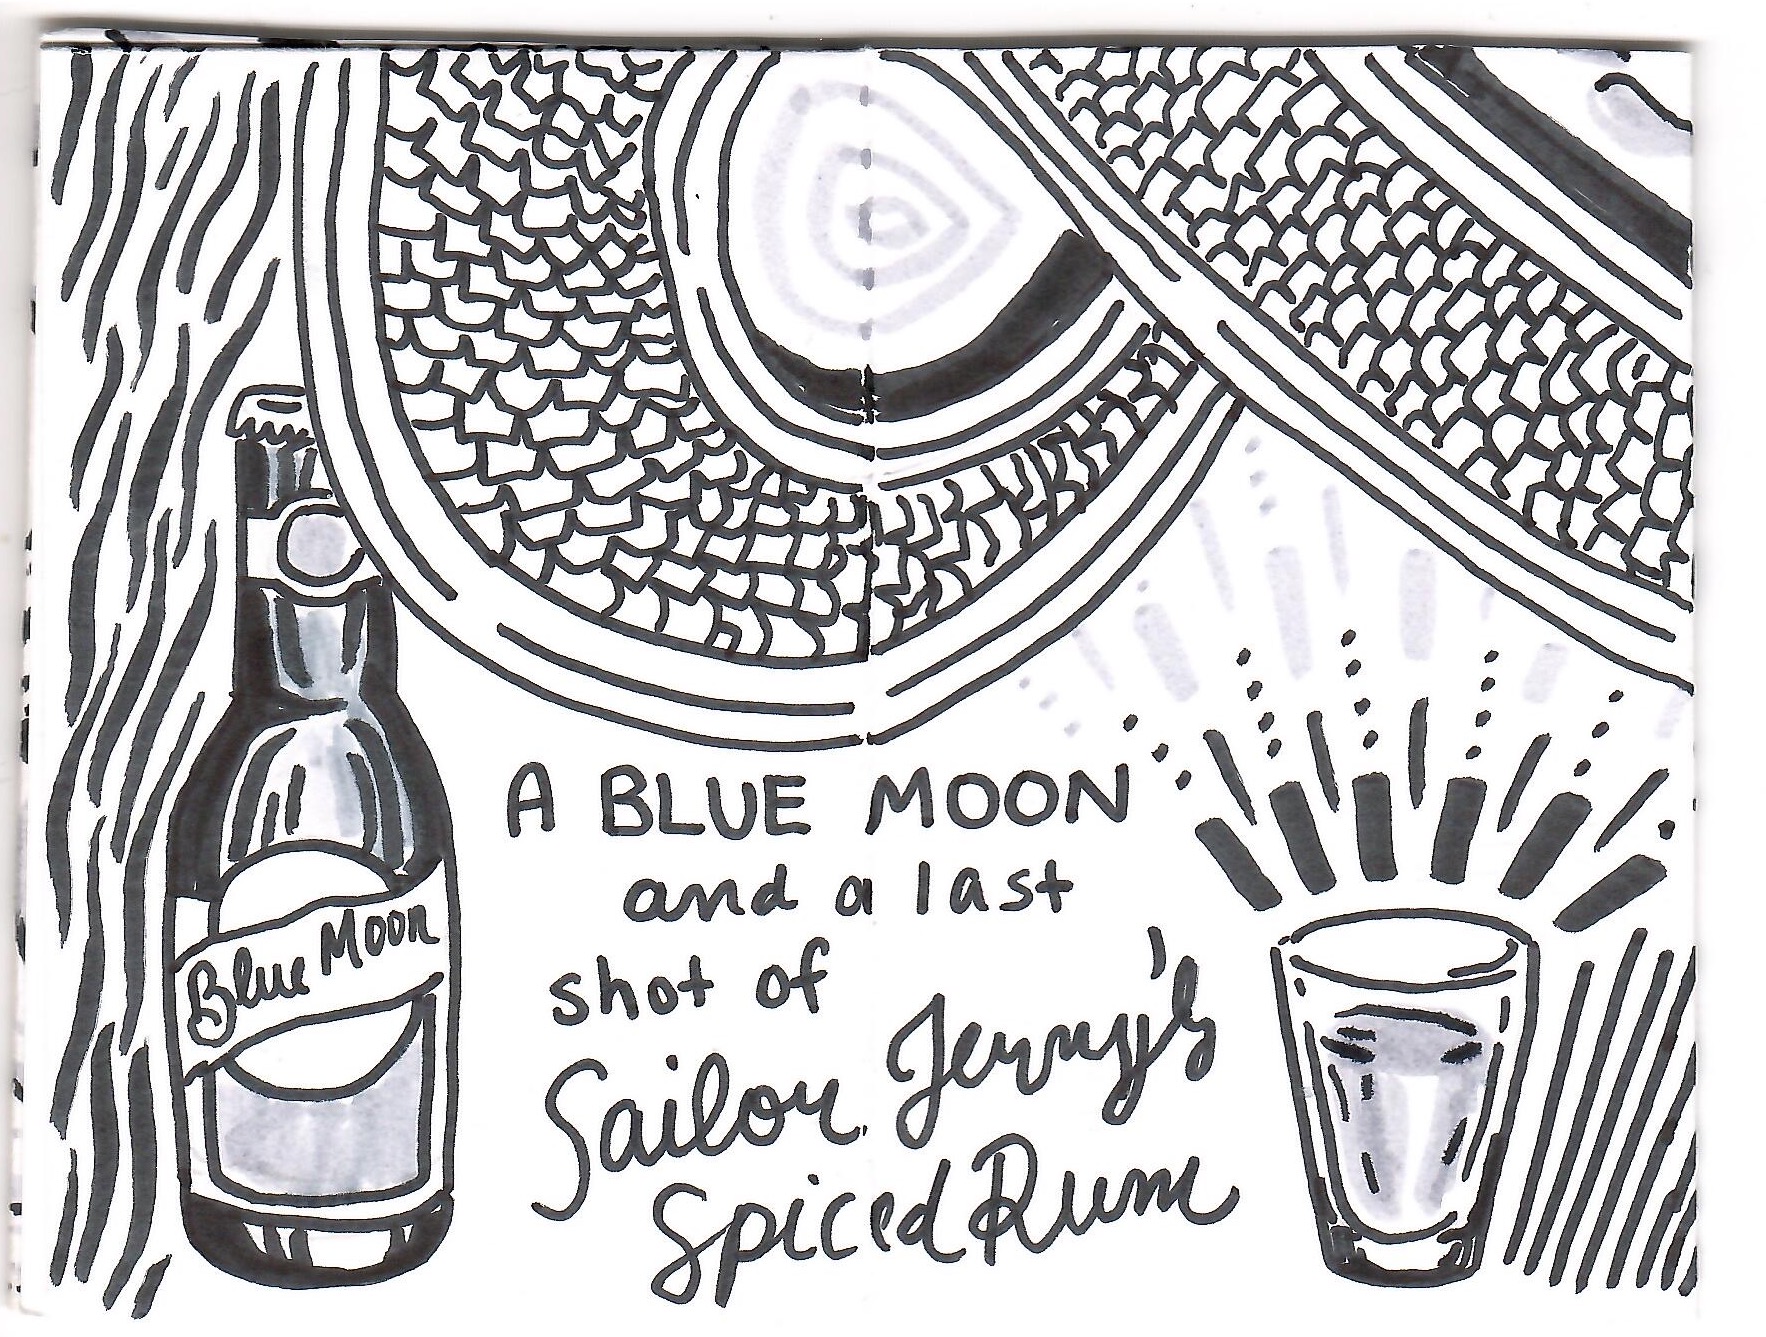 Blue Moon
A BLUE MOON
and a last
shot of
Sailor Jerry's
Spiced Rum